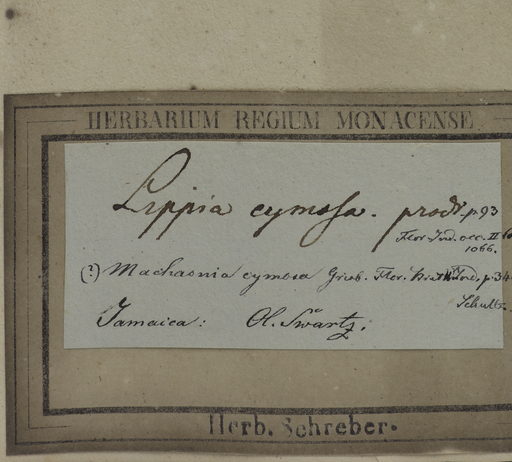 HERBARIUM REGIUM MONACENSE
Lippia cymosa. prodr. p. 93
Flor. Ind. occ. II
1066.
(?) Machaonia cymosa Griseb. Flor. Ind. p. 34
Schultz.
Jamaica: Ol. Swartz.
Herb. Schreber.